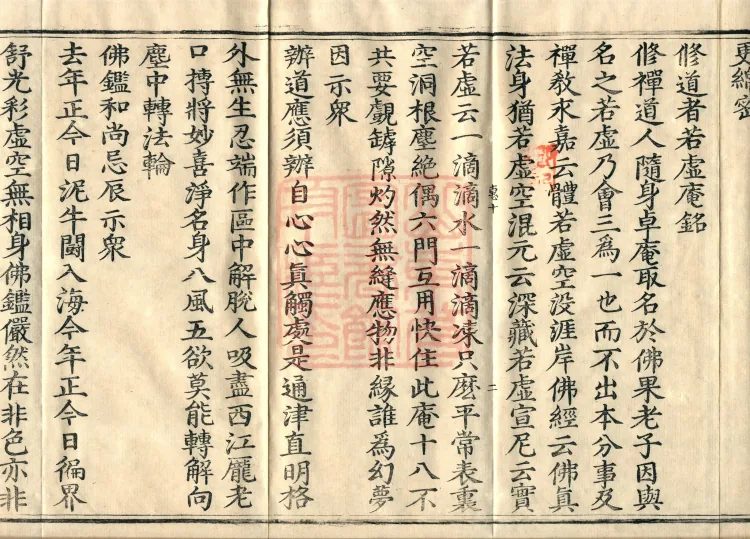 更綿密
修道者若虛庵銘
修禪道人隨身卓庵取名於佛果老子因與
名之若虛乃會三為一也而不出本分事及
禪教求嘉云體若虛空没涯岸佛經云佛真
法身猶若虛空混元云深藏若虛宣尼云實
若虛云一滴滴水一滴滴凍只麽平常表裏
空洞根塵絶偶六門互用快住此庵十八不
共要覷罅隙灼然無縫應物非緣誰為幻夢
因示衆
辦道應須辦自心心真觸處是通津直明格
外無生忍端作區中解脫人吸盡西江龐老
口摶將妙喜淨名身八風五欲莫能轉解向
塵中轉法輪
佛鑑和尚忌辰示衆
去年正今日泥牛鬭入海今年正今日徧界
舒光彩虛空無相身佛鑑儼然在非色亦非